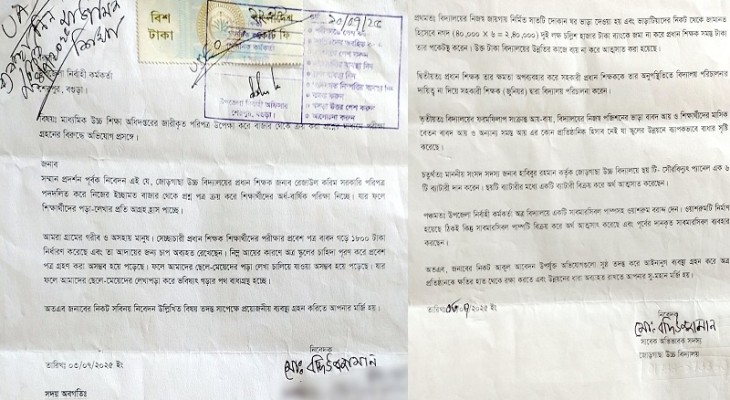 বিশ
টাকা
কোর্ট ফি
২০/০৭/২৫
উপজেলা নির্বাহী অফিসার
শেরপুর, বগুড়া।
নির্বাহী কর্মকর্তা
শেরপুর, বগুড়া।
বিষয়ঃ মাধ্যমিক উচ্চ শিক্ষা অধিদপ্তরের জারীকৃত পরিপত্র উপেক্ষা করে বাজার থেকে ক্রয় করা প্রশ্নের মাধ্যমে পরীক্ষা
গ্রহনের বিরুদ্ধে অভিযোগ প্রসঙ্গে।
জনাব
সম্মান প্রদর্শন পূর্বক নিবেদন এই যে, জোড়গাছা উচ্চ বিদ্যালয়ের প্রধান শিক্ষক জনাব রেজাউল করিম সরকারি পরিপত্র
পদদলিত করে নিজের ইচ্ছামত বাজার থেকে প্রশ্ন পত্র ক্রয় করে শিক্ষার্থীদের অর্ধ-বার্ষিক পরিক্ষা নিচ্ছে। যার ফলে
শিক্ষার্থীদের পড়া-লেখার প্রতি আগ্রহ হ্রাস পাচ্ছে।
আমরা গ্রামের গরীব ও অসহায় মানুষ। সেচ্ছাচারী প্রধান শিক্ষক শিক্ষার্থীদের পরীক্ষার প্রবেশ পত্র বাবদ গড়ে ১৮০০ টাকা
নির্ধারণ করেছে এবং তা আদায়ের জন্য চাপ অব্যহত রেখেছেন। নিম্ন আয়ের কারণে অত্র স্কুলের চাহিদা পূরণ করে প্রবেশ
পত্র গ্রহণ করা অসম্ভব হয়ে পড়েছে। ফলে আমাদের ছেলে-মেয়েদের পড়া লেখা চালিয়ে যাওয়া অসম্ভব হয়ে পড়েছে। যার
ফলে আমাদের ছেলে-মেয়েদের লেখাপড়া করে ভবিষ্যৎ গড়ার পথ বাধাগ্রস্থ হচ্ছে।
অতএব জনাবের নিকট সবিনয় নিবেদন উল্লিখিত বিষয় তদন্ত সাপেক্ষে প্রয়োজনীয় ব্যবস্থা গ্রহন করিতে আপনার মর্জি হয়।
নিবেদক
তারিখঃ ০৩/০৭/২০২৫ ইং
মোঃ বদিউজ্জামান
সদয় অবগতিঃ
প্রথমতঃ বিদ্যালয়ের নিজস্ব জায়গায় নির্মিত সাতটি দোকান ঘর ভাড়া দেওয়া হয় এবং ভাড়াটিয়াদের নিকট থেকে জামানত
হিসেবে নগদ (৪০,০০০ X ৬ = ২,৪০,০০০) দুই লক্ষ চল্লিশ হাজার টাকা ব্যাংকে জমা না করে প্রধান শিক্ষক সমস্ত টাকা
তার পকেটস্থ করেন। উক্ত টাকা বিদ্যালয়ের উন্নতির কাজে ব্যয় না করে আত্মসাত করা হয়েছে।
দ্বিতীয়তঃ প্রধান শিক্ষক তার ক্ষমতা অপব্যবহার করে সহকারী প্রধান শিক্ষককে তার অনুপস্থিতিতে বিদ্যালয় পরিচালনার
দায়িত্ব না দিয়ে সহকারী শিক্ষক (জুনিয়র) দ্বারা বিদ্যালয় পরিচালনা করেন।
তৃতীয়তঃ বিদ্যালয়ের ফরমফিলাপ সংক্রান্ত আয়-ব্যয়, বিদ্যালয়ের নিজস্ব পজিশনের ভাড়া বাবদ আয় ও শিক্ষার্থীদের মাসিক
বেতন বাবদ আয় ও অন্যান্য সমস্ত আয় এর কোন প্রাতিষ্ঠানিক হিসাব নেই যা স্কুলের উন্নয়নে ব্যাপকভাবে ব্যাধার সৃষ্টি
করেছে।
চতুর্থতঃ মাননীয় সংসদ সদস্য জনাব হাবিবুর রহমান কর্তৃক জোড়গাছা উচ্চ বিদ্যালয়ে ছয় টি- সৌরবিদ্যুৎ প্যানেল এক ৬
টি ব্যাটারী দান করেন। ছয়টি ব্যাটারীর মধ্যে একটি ব্যাটারী বিক্রয় করে অর্থ আত্মসাত করেছেন।
পঞ্চমতঃ উপজেলা নির্বাহী কর্মকর্তা অত্র বিদ্যালয়ে একটি সাবমারসিবল পাম্পসহ ওয়াশরুম বরাদ্দ দেন। ওয়াশরুমটি নির্মাণ
হয়েছে ঠিকই কিন্তু সাবমারসিবল পাম্পটি বিক্রয় করে অর্থ আত্মসাত করেছে এবং পূর্বের দানকৃত সাবমারসিবল ব্যবহার
করছেন।
অতএব, জনাবের নিকট আকুল আবেদন উপর্যুক্ত অভিযোগগুলো সুষ্ঠ তদন্ত করে আইনানুগ ব্যবস্থা গ্রহন করে অত্র
প্রতিষ্ঠানকে ক্ষতির হাত থেকে রক্ষা করতে এবং উন্নয়নের ধারা অব্যাহত রাখতে আপনার সু-মহান মর্জি হয়।
তারিখঃ ০৩/০৭/২০২৫ ইং
নিবেদক
মোঃ বদিউজ্জামান
সাবেক অভিভাবক সদস্য
জোড়গাছা উচ্চ বিদ্যালয়